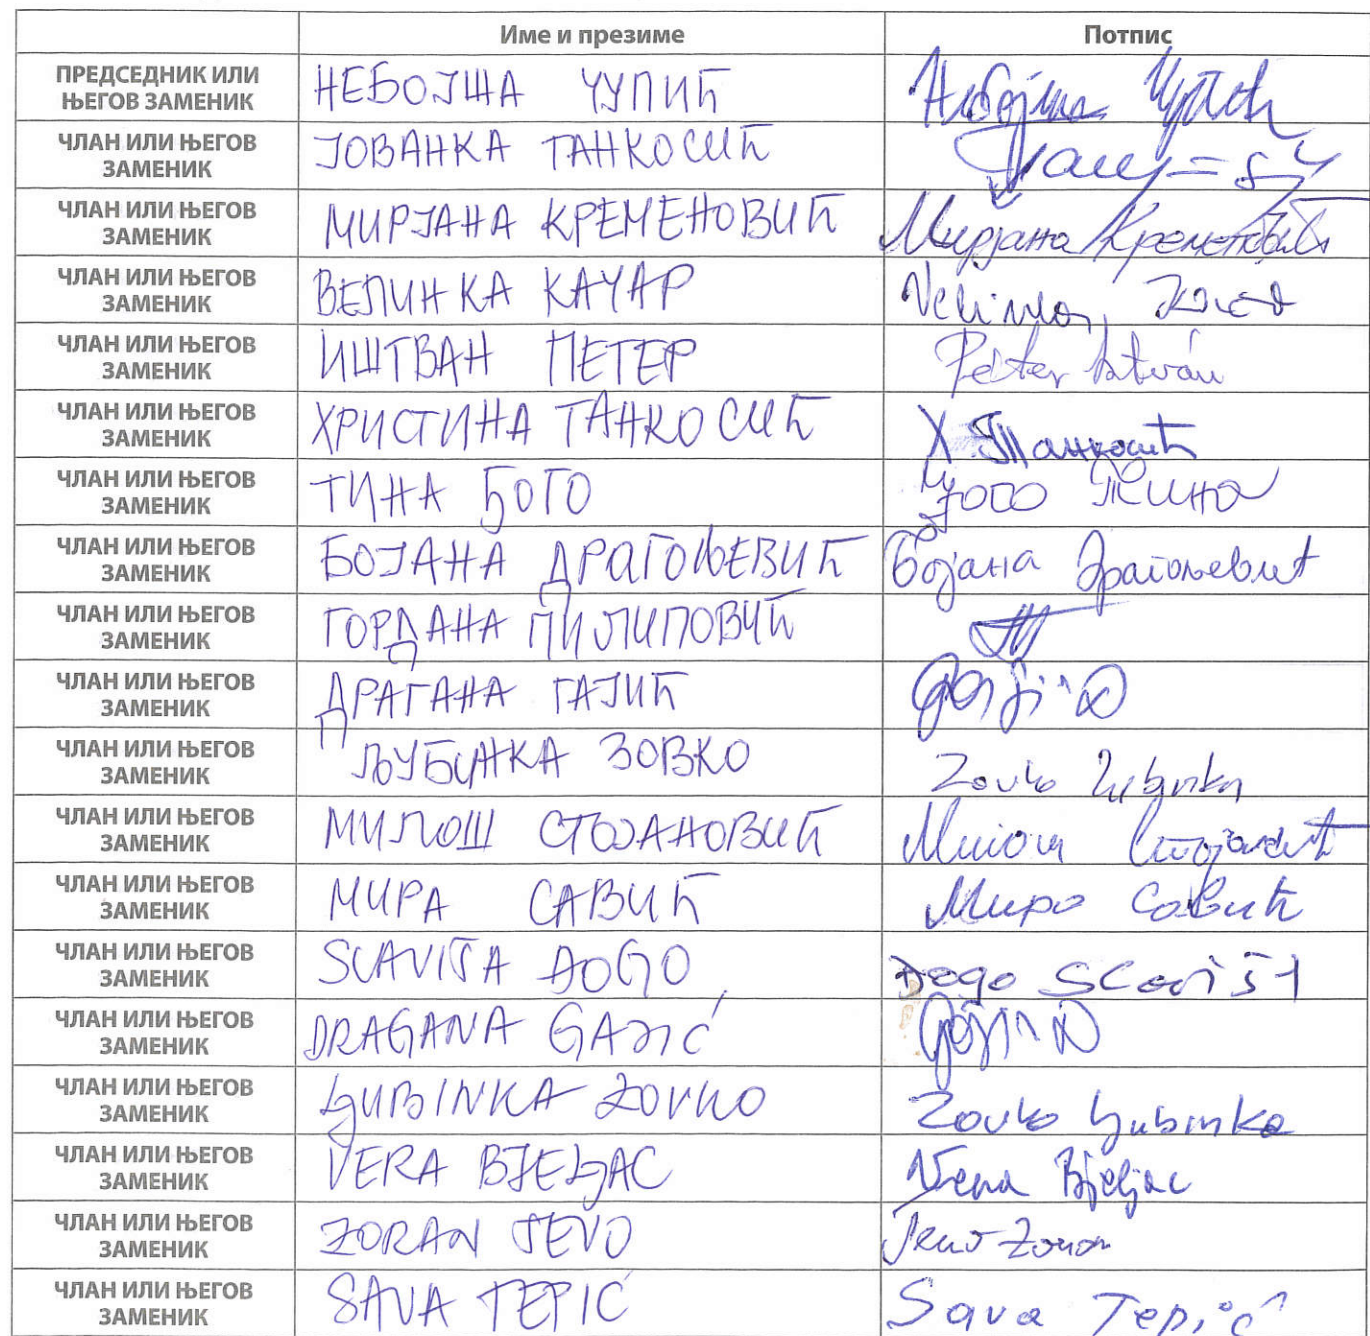 Име и презиме Потпис
ПРЕДСЕДНИК ИЛИ
ЊЕГОВ ЗАМЕНИК
НЕБОЈША ЧУПИЋ Небојша Чупић
ЧЛАН ИЛИ ЊЕГОВ
ЗАМЕНИК
ЈОВАНКА ТАНКОСИЋ
ЧЛАН ИЛИ ЊЕГОВ
ЗАМЕНИК
МИРЈАНА КРЕМЕНОВИЋ Мирјана Кременовић
ЧЛАН ИЛИ ЊЕГОВ
ЗАМЕНИК
ВЕЛИНКА КАЧАР Velinka
ЧЛАН ИЛИ ЊЕГОВ
ЗАМЕНИК
ИШТВАН ПЕТЕР Peter István
ЧЛАН ИЛИ ЊЕГОВ
ЗАМЕНИК
ХРИСТИНА ТАНКОСИЋ Х Танкосић
ЧЛАН ИЛИ ЊЕГОВ
ЗАМЕНИК
ТИНА ЂОГО Тина
ЧЛАН ИЛИ ЊЕГОВ
ЗАМЕНИК
БОЈАНА ДРАГОЊЕВИЋ Бојана Драгоњевић
ЧЛАН ИЛИ ЊЕГОВ
ЗАМЕНИК
ГОРДАНА ПИЛИПОВИЋ
ЧЛАН ИЛИ ЊЕГОВ
ЗАМЕНИК
ДРАГАНА ГАЈИЋ Gajić D
ЧЛАН ИЛИ ЊЕГОВ
ЗАМЕНИК
ЉУБИНКА ЗОВКО Zovko Ljubinka
ЧЛАН ИЛИ ЊЕГОВ
ЗАМЕНИК
МИЛОШ СТОЈАНОВИЋ Милош Стојановић
ЧЛАН ИЛИ ЊЕГОВ
ЗАМЕНИК
МИРА САВИЋ Мира Савић
ЧЛАН ИЛИ ЊЕГОВ
ЗАМЕНИК
SLAVIŠA ĐOGO Đogo Slaviša
ЧЛАН ИЛИ ЊЕГОВ
ЗАМЕНИК
DRAGANA GAJIĆ Gajić D
ЧЛАН ИЛИ ЊЕГОВ
ЗАМЕНИК
LJUBINKA ZOVKO Zovko Ljubinka
ЧЛАН ИЛИ ЊЕГОВ
ЗАМЕНИК
VERA BJELJAC Vera Bjeljac
ЧЛАН ИЛИ ЊЕГОВ
ЗАМЕНИК
ZORAN JEVO Jevo Zoran
ЧЛАН ИЛИ ЊЕГОВ
ЗАМЕНИК
SAVA TEPIĆ Sava Tepić